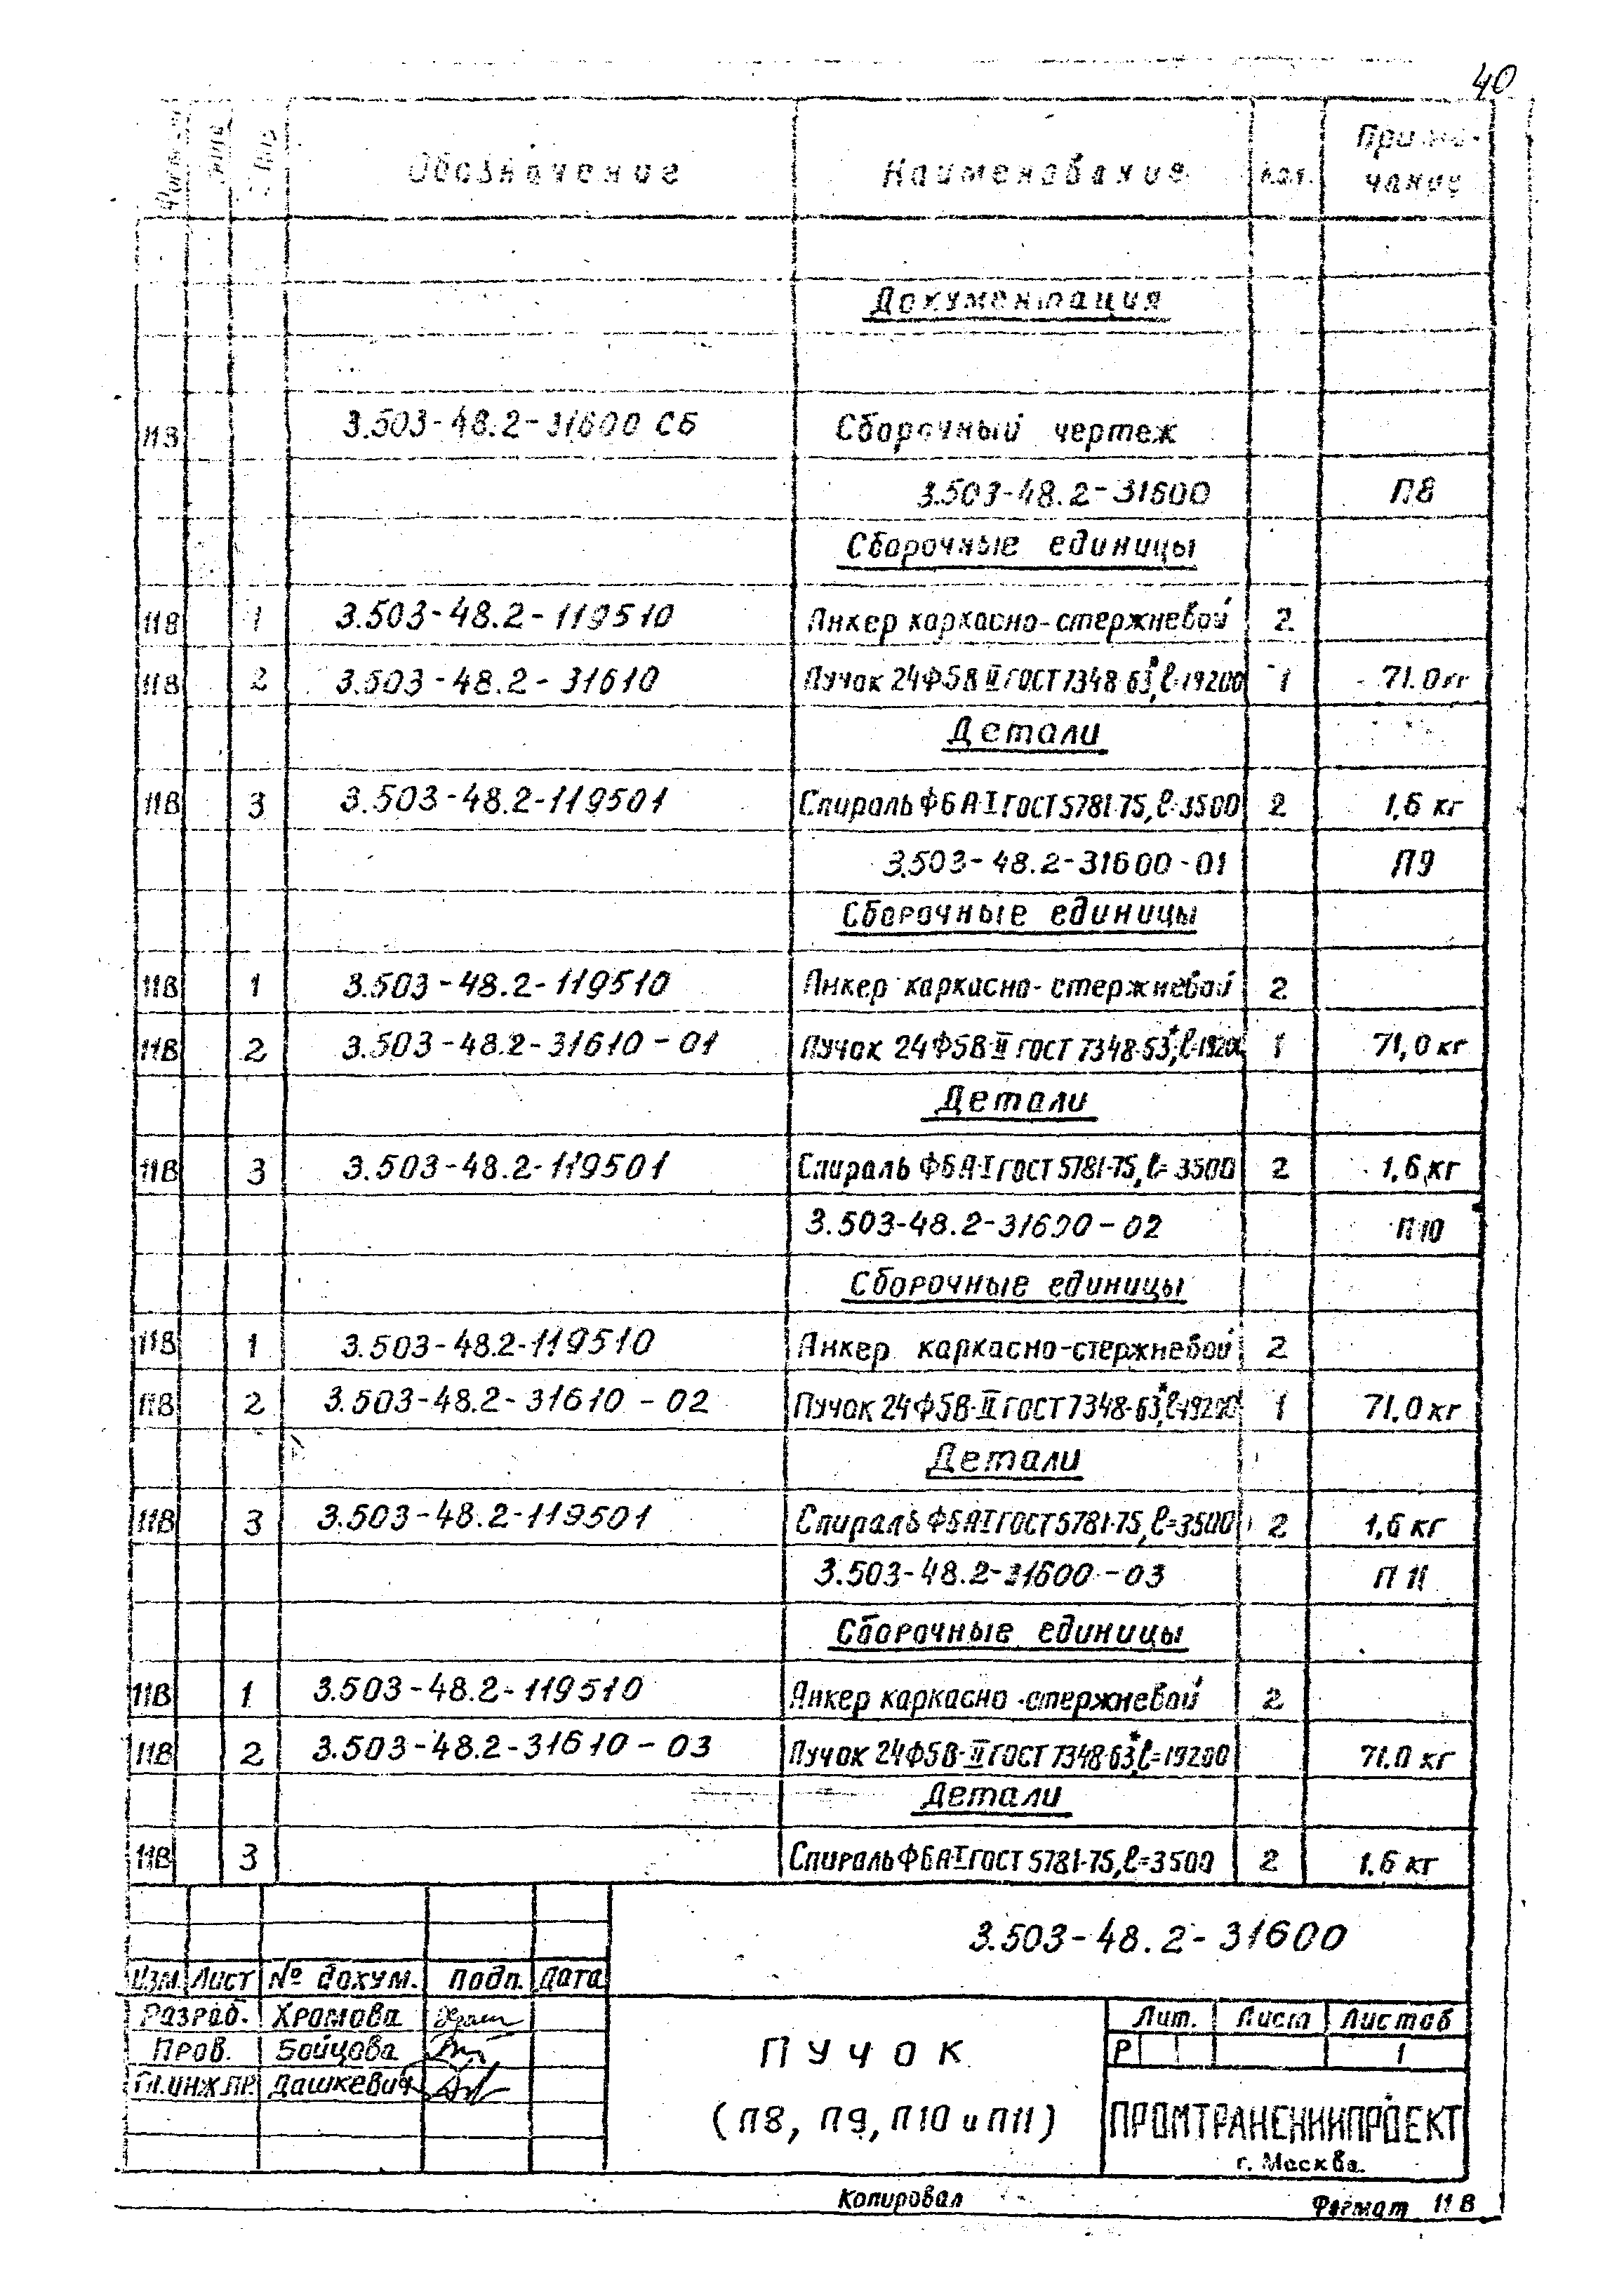 40
Обозначение Наименование Кол. Приме-
чание
Документация
11В 3.503-48.2-31600 СБ Сборочный чертеж
3.503-48.2-31600 П8
Сборочные единицы
11В 1 3.503-48.2-119510 Анкер каркасно-стержневой 2
11В 2 3.503-48.2-31610 Пучок 24Ф5В-II ГОСТ 7348-63*, ℓ=19200 1 71.0 кг
Детали
11В 3 3.503-48.2-119501 Спираль Ф6А-I ГОСТ 5781-75, ℓ=3500 2 1,6 кг
3.503-48.2-31600-01 П9
Сборочные единицы
11В 1 3.503-48.2-119510 Анкер каркасно-стержневой 2
11В 2 3.503-48.2-31610-01 Пучок 24Ф5В-II ГОСТ 7348-63*, ℓ=19200 1 71,0 кг
Детали
11В 3 3.503-48.2-119501 Спираль Ф6А-I ГОСТ 5781-75, ℓ=3500 2 1,6 кг
3.503-48.2-31600-02 П10
Сборочные единицы
11В 1 3.503-48.2-119510 Анкер каркасно-стержневой 2
11В 2 3.503-48.2-31610-02 Пучок 24Ф5В-II ГОСТ 7348-63*, ℓ=19200 1 71,0 кг
Детали
11В 3 3.503-48.2-119501 Спираль Ф6А-I ГОСТ 5781-75, ℓ=3500 2 1,6 кг
3.503-48.2-31600-03 П 11
Сборочные единицы
11В 1 3.503-48.2-119510 Анкер каркасно-стержневой 2
11В 2 3.503-48.2-31610-03 Пучок 24Ф5В-II ГОСТ 7348-63*, ℓ=19200 71.0 кг
Детали
11В 3 Спираль Ф6А-I ГОСТ 5781-75, ℓ=3500 2 1.6 кг
3.503-48.2-31600
Изм. Лист № докум. Подп. Дата
Разраб. Храмова
Пров. Бойцова
Гл.инж.пр. Дашкевич
ПУЧОК
(П8, П9, П10 и П11)
Лит. Лист Листов
Р 1
ПРОМТРАНСНИИПРОЕКТ
г. Москва.
Копировал Формат 11В